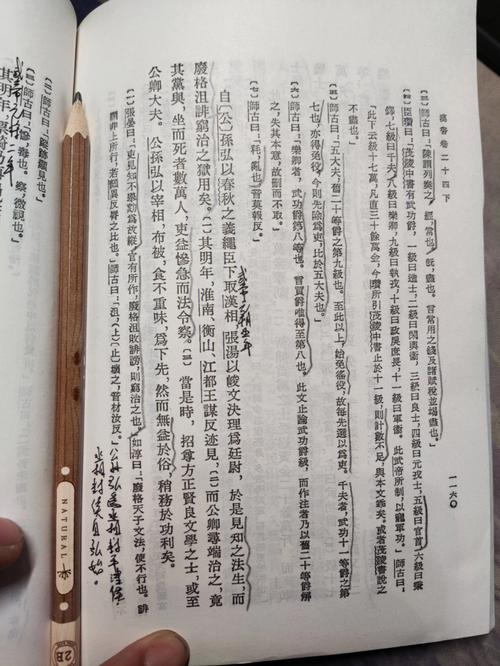 漢書卷二十四下
一一六〇
〔三〕師古曰:「陳謂列奏之。經,常也。既,盡也。言常用之錢及諸賦稅並竭盡也。」
〔四〕臣瓚曰:「茂陵中書有武功爵,一級曰造士,二級曰閑輿衞,三級曰良士,四級曰元戎士,五級曰官首,六級曰秉
鐸,七級曰千夫,八級曰樂卿,九級曰執戎,十級曰政戾庶長,十一級曰軍衞。此武帝所制,以寵軍功。」師古曰:
「此下云級十七萬,凡直三十餘萬金,今瓚所引茂陵中書止於十一級,則計數不足,與本文乖矣。或者茂陵書說之
不盡也。」
〔五〕師古曰:「五大夫,舊二十等爵之第九級也。至此以上,始免徭役,故每先選以爲吏。千夫者,武功十一等爵之第
七也,亦得免役,今則先除爲吏,比於五大夫也。」
〔六〕師古曰:「樂卿者,武功爵第八等也。言買爵唯得至第八也。此文止論武功爵級,而作注者乃以舊二十等爵解
之,失其本意,故刪而不取。」
〔七〕師古曰:「耗,亂也。音莫報反。」
自〔公〕孫弘以春秋之義繩臣下取漢相,張湯以峻文決理爲廷尉,於是見知之法生,而
廢格沮誹窮治之獄用矣。〔一〕其明年,淮南、衡山、江都王謀反迹見,〔二〕而公卿尋端治之,竟
其黨與,坐而死者數萬人,吏益慘急而法令察。〔三〕當是時,招尊方正賢良文學之士,或至
公卿大夫。公孫弘以宰相,布被,食不重味,爲下先,然而無益於俗,稍務於功利矣。
〔一〕張晏曰:「吏見知不舉劾爲故縱,官有所作,廢格沮敗誹謗,則窮治之也。」如淳曰:「廢格天子文法,使不行也。誹
謂非上所行,若顏異反脣之比也。」師古曰:「沮,(上)〔止〕壞之,音材汝反。」
〔二〕師古曰:「蹤迹顯見也。」
〔三〕師古曰:「慘,毒也。察,微視也。」
其明年,
NATURAL
2B